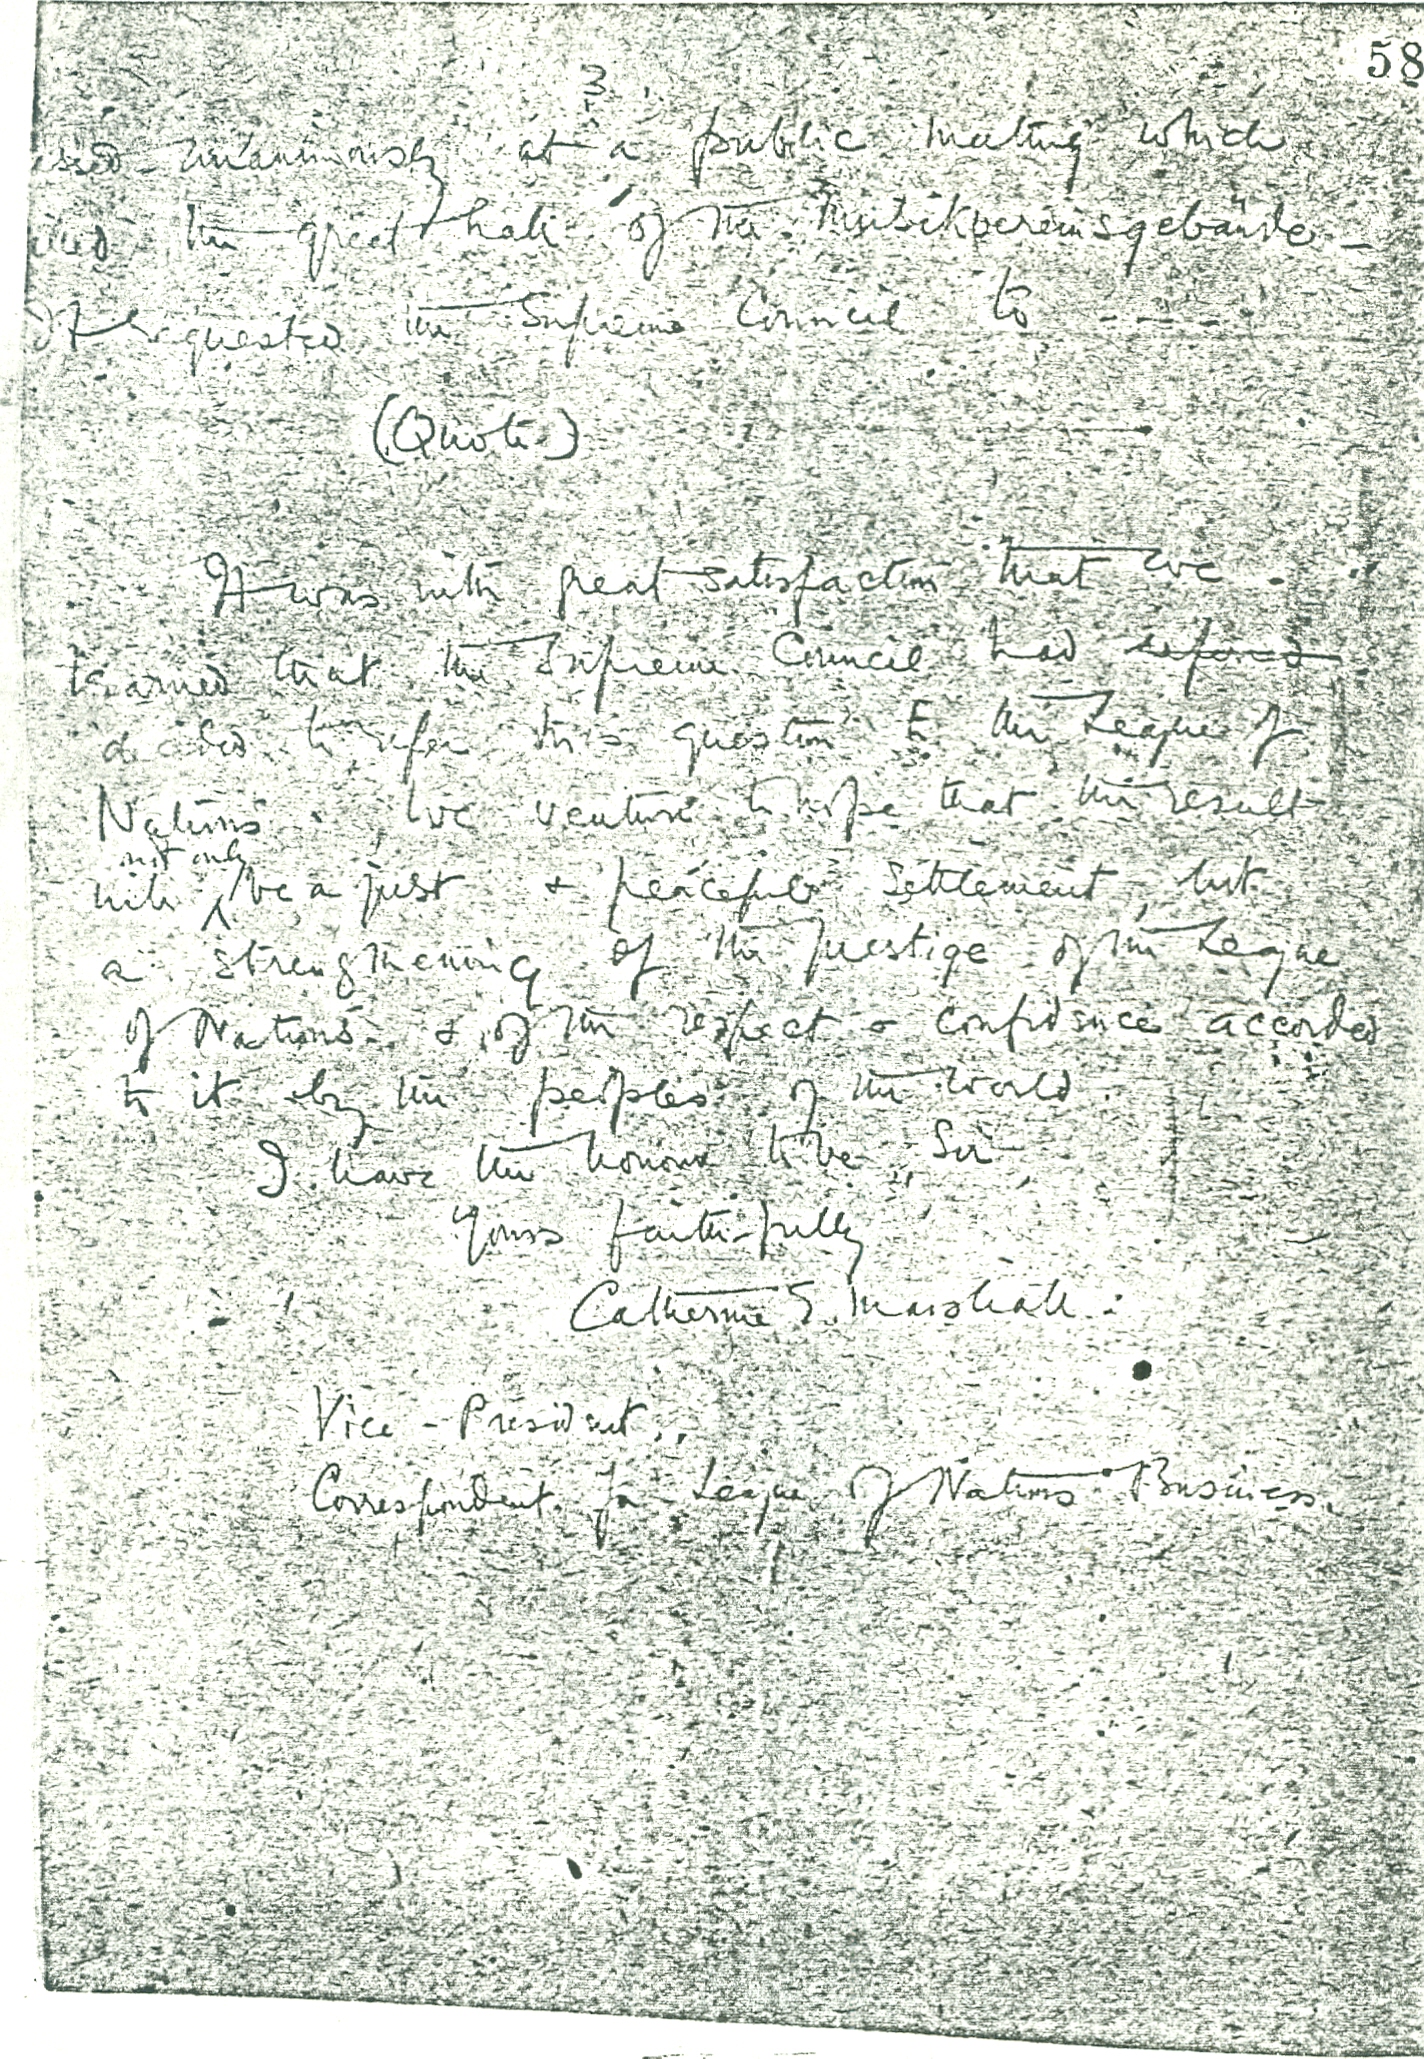 58
3
ssed unanimously at a public meeting which
illed the great hall of the Musikvereinsgebäude –
It requested the Supreme Council to ----
(Quote)
It was with great satisfaction that we
learned that the Supreme Council had referred
decided to refer this question to the League of
Nations. We venture to hope that the result
not only
will ^ be a just & peaceful settlement, but
a strengthening of the prestige of the League
of Nations & of the respect & confidence accorded
to it by the peoples of the world.
I have the honour to be, Sir
Yours faithfully
Catherine E. Marshall.
Vice-President.
Correspondent for League of Nations Business.